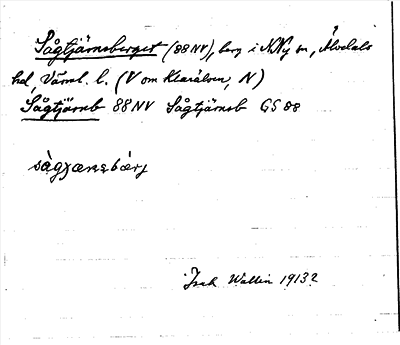 Sågtjärnsberget (88NV), berg i N Ny sn, Älvdals
hd, Värml. l. (V om Klarälven, N)
Sågtjärnb 88 NV Sågtjärnsb GS 88
Isak Wallin 1913?